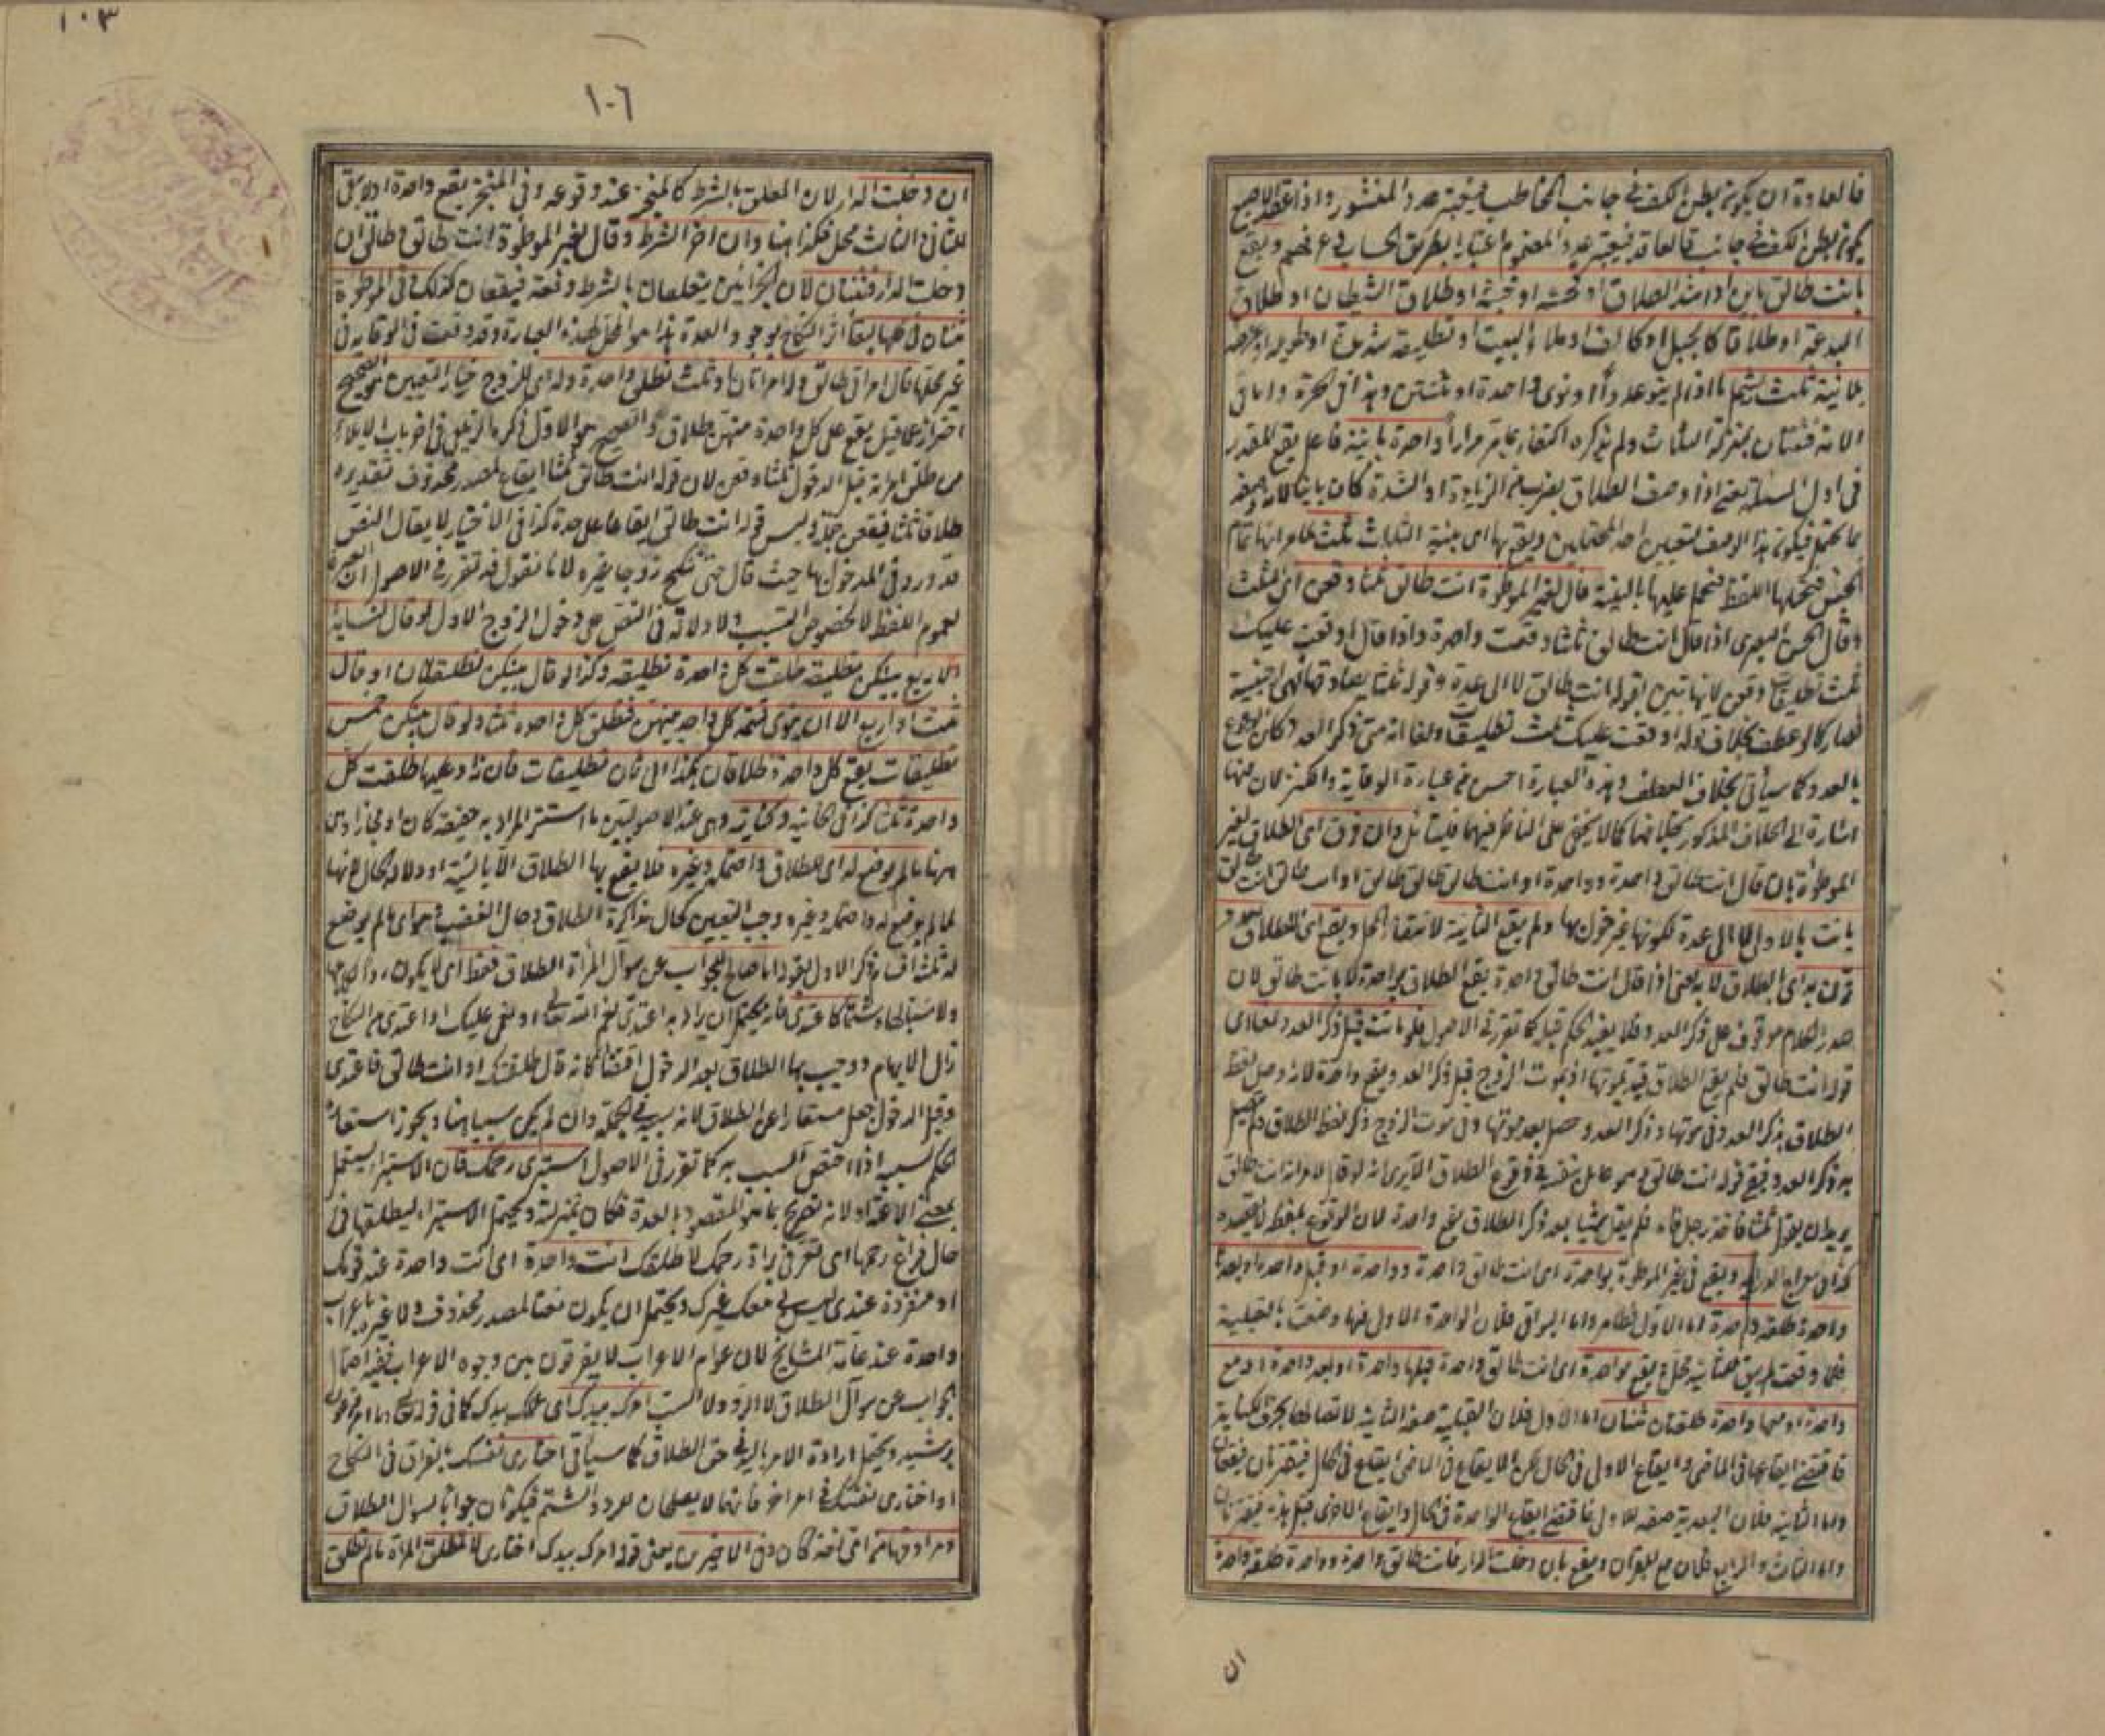 فالعادة ان يكون بطن الكف في جانب المخاطب فيعتبر عدد المنشور واذا عقد الاصبع
يكون بطن الكف في جانب العاقد فيعتبر عدد المضموم اعتبارا بطريق الحساب فافهم ويقع
بانت طالق باين او اشد الطلاق او افحشه او اخبثه او طلاق الشيطان او طلاق
البدعة او طلاقا كالجبل او كالف او ملأ البيت او تطليقة شديدة او طويلة او عريضة
بلا نية ثلث يشمل ما اذا لم ينو عددا او نوى واحدة او ثنتين وهذا في الحرة واما في
الامة فثنتان بمنزلة الثلاث ولم يذكره اكتفاء بما مر مرارا واحدة باينة فاعل يقع المقدر
في اول المسئلة يعني اذا وصف الطلاق بضرب من الزيادة او الشدة كان باينا لانه وصفه
بما يحتمله فيكون هذا الوصف لتعيين احد المحتملين ويقع بها اي بنية الثلاث ثلث لما مر انها تمام
الجنس فيحتملها اللفظ فتحمل عليها بالنية قال لغير الموطوءة انت طالق ثلثا وقعن اي الثلث
وقال الحسن البصري اذا قال انت طالق ثلثا وقعت واحدة واذا قال اوقعت عليك
ثلث تطليقات وقعن لانها تبين بقوله انت طالق لا الى عدة وقوله ثلثا يصادفها وهي اجنبية
فصار كما لو عطف بخلاف قوله اوقعت عليك ثلث تطليقات ولنا انه متى ذكر العدد كان الوقوع
بالعدد كما سيأتي بخلاف العطف وهذه العبارة احسن من عبارة الوقاية والكنز لان فيها
اشارة الى الخلاف المذكور بخلافهما كما لا يخفى على الناظر فيهما فليتأمل وان فرق اي الطلاق لغير
الموطوءة بان قال انت طالق واحدة وواحدة او انت طالق طالق طالق او انت طالق انت طالق
بانت بالاولى لا الى عدة لكونها غير مدخول بها ولم يقع الثانية لانتفاء المحل ويقع اي الطلاق بعدد
قرن به اي بالطلاق لا به يعني اذا قال انت طالق واحدة يقع الطلاق بواحدة لا بانت طالق لان
صدر الكلام موقوف على ذكر العدد فلا يفيد الحكم قبله كما تقرر في الاصول فلو ماتت قبل ذكر العدد لغا اي
قوله انت طالق فلم يقع الطلاق قيد بموتها اذ بموت الزوج قبل ذكر العدد يقع واحدة لانه وصل لفظ
الطلاق بذكر العدد في موتها وذكر العدد حصل بعد موتها وفي موت الزوج ذكر لفظ الطلاق ولم يتصل
به ذكر العدد فبقي قوله انت طالق وهو عامل بنفسه في وقوع الطلاق الا يرى انه لو قال لامرأته انت طالق
يريد ان يقول ثلثا فاخذ رجل فاه فلم يقل شيئا بعد ذكر الطلاق يقع واحدة لان الوقوع بلفظه لا بقصده
كذا في معراج الدراية ويقع في غير الموطوءة بواحدة اي انت طالق واحدة وواحدة او قبل واحدة او بعدها
واحدة طلقة واحدة اما الاول فظاهر واما البواقي فلان الواحدة الاولى فيها وصفت بالقبلية
فلما وقعت لم يبق للثانية محل ويقع بواحدة اي انت طالق واحدة قبلها واحدة او بعد واحدة او مع
واحدة او معها واحدة طلقتان ثنتان اما الاول فلان القبلية صفة الثانية لاتصالها بحرف الكناية
فاقتضى ايقاعها في الماضي وايقاع الاولى في الحال لكن الايقاع في الماضي ايقاع في الحال فيقترنان فيقعان
واما الثانية فلان البعدية صفة للاولى فاقتضى ايقاع الواحدة في الحال وايقاع الاخرى قبل هذه فيقترنان
واما الثالث والرابع فلان مع للقران ويقع بان دخلت الدار فانت طالق واحدة وواحدة طلقة واحدة
ان
١٠٣
١٠٦
ان دخلت الدار لان المعلق بالشرط كالمنجز عند وقوعه وفي المنجز يقع واحدة اذ لا يبقى
للثاني والثالث محل فكذا هنا وان اخر الشرط وقال لغير الموطوءة انت طالق وطالق ان
دخلت الدار فثنتان لان الجزائين يتعلقان بالشرط دفعة فيقعان كذلك في الموطوءة
ثنتان في كلها لبقاء اثر النكاح بوجود العدة هذا هو المحل لهذه العبارة وقد وقعت في الوقاية في
غير محلها قال امرأتي طالق وله امرأتان او ثلث تطلق واحدة وله اي للزوج خيار التعيين هو الصحيح
احتراز عما قيل يقع على كل واحدة منهن طلاق والصحيح هو الاول ذكره الزيلعي في اخر باب الايلاء
من طلق امرأته قبل الدخول ثلثا وقعن لان قوله انت طالق ثلثا ايقاع لمصدر محذوف تقديره
طلاقا ثلثا فيقعن جملة وليس قوله انت طالق ايقاعا على حدة كذا في الاختيار لا يقال النص
قد ورد في المدخول بها حيث قال حتى تنكح زوجا غيره لانا نقول قد تقرر في الاصول ان العبرة
لعموم اللفظ لا لخصوص السبب ولا دلالة في النص على دخول الزوج الاول لو قال لنسائه
الاربع بينكن تطليقة طلقت كل واحدة تطليقة وكذا لو قال بينكن تطليقتان او قال
ثلث او اربع الا ان ينوي قسمة كل واحدة بينهن فتطلق كل واحدة ثلثا ولو قال بينكن خمس
تطليقات يقع كل واحدة طلاقان هكذا الى ثمان تطليقات فان زاد عليها طلقت كل
واحدة ثلثا كذا في الخانية وكناية وهي عند الاصوليين ما استتر المراد به حقيقة كان او مجازا وفي
ههنا ما لم يوضع له اي للطلاق واحتمله وغيره فلا يقع بها الطلاق الا بالنية او دلالة الحال لانها
لما لم يوضع له واحتمله وغيره وجب التعيين كحال مذاكرة الطلاق وحال الغضب وهو اي ما لم يوضع
له ثلثة اقسام ذكر الاول بقوله اما صالح للجواب عن سؤال المرأة الطلاق فقط اي لا يكون ردا لكلامها
ولا سبا لها وشتما كاعتدي فانه يحتمل ان يراد به اعتدي نعم الله تعالى او نعمي عليك او اعتدي من النكاح
زال الابهام ووجب بها الطلاق بعد الدخول اقتضاء كانه قال طلقتك او انت طالق فاعتدي
وقبل الدخول جعل مستعارا عن الطلاق لانه سببه في الجملة وان لم يكن سببا هنا ويجوز استعارة
الحكم لسببه اذا اختص السبب به كما تقرر في الاصول استبرئي رحمك فان الاستبراء يستعمل
بمعنى الاعتداد لانه تصريح بما هو المقصود بالعدة فكان بمنزلته ويحتمل الاستبراء ليطلقها في
حال فراغ رحمها اي تعرفي براءة رحمك لاطلقك انت واحدة اي انت واحدة عند قومك
او منفردة عندي ليس لي معك غيرك ويحتمل ان يكون نعتا لمصدر محذوف ولا عبرة باعراب
واحدة عند عامة المشايخ لان عوام الاعراب لا يفرقون بين وجوه الاعراب ففيه احتمال
الجواب عن سؤال الطلاق لا الرد ولا السب امرك بيدك اي عملك بيدك كما في قوله تعالى وما امر فرعون
برشيد ويحتمل ارادة الامر باليد في حق الطلاق كما سيأتي اختاري نفسك بالفراق في النكاح
او اختاري نفسك في امر اخر فانهما لا يصلحان للرد والشتم فيكونان جوابا لسؤال الطلاق
ومرادفها من اي لغة كان وفي الاخيرين يعني قوله امرك بيدك اختاري لا تطلق المرأة ما لم تطلق